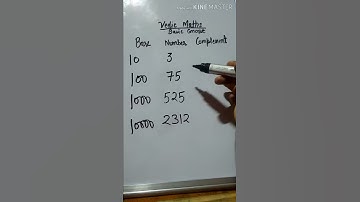 Made with KINEMASTER
Vedic Maths
Basic Concept
Base Number Complement
10 3
100 75
1000 525
10000 2312